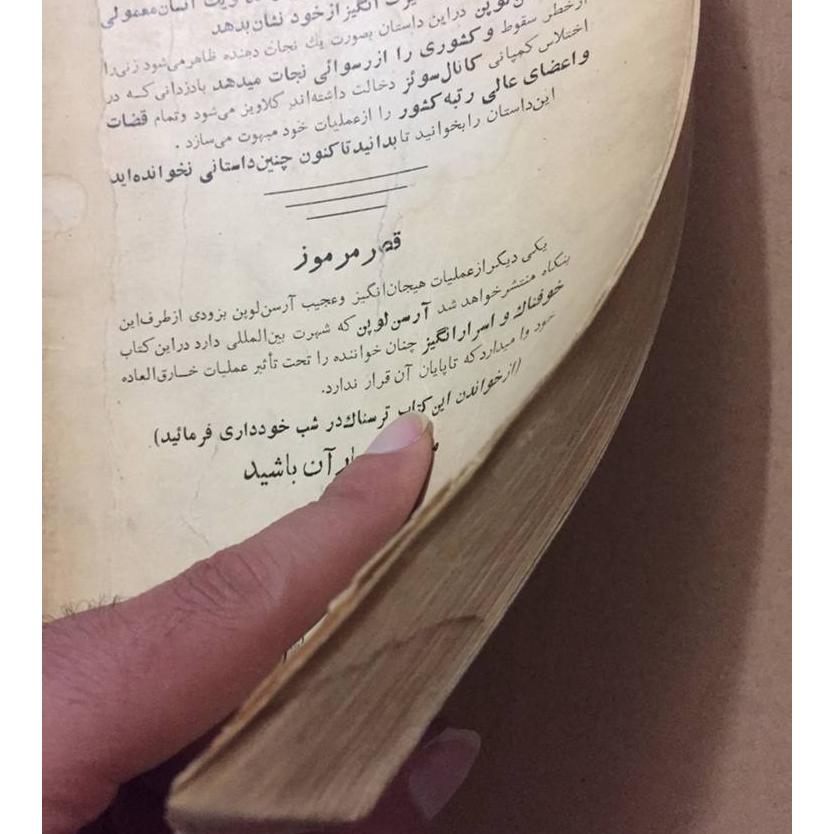 ویک انسان معمولی
انگیز از خود نشان بدهد
دراین داستان بصورت یك نجات دهنده ظاهر می‌شود زنی را
ازخطر سقوط و کشوری را از رسوائی نجات میدهد بادزدانی که در
اختلاس کمپانی کانال سوئز دخالت داشته‌اند گلاویز می‌شود وتمام قضات
و اعضای عالی رتبه کشور را ازعملیات خود مبهوت می‌سازد .
این‌داستان را بخوانید تا بدانید تاکنون چنین داستانی نخوانده‌اید
قصر مرموز
یکی دیگر ازعملیات هیجان‌انگیز وعجیب آرسن‌لوپن بزودی ازطرف‌این
بنگاه منتشر خواهد شد آرسن‌لوپن که شهرت بین‌المللی دارد دراین کتاب
خوفناك و اسرارانگیز چنان خواننده را تحت تأثیر عملیات خارق‌العاده
خود وا میدارد که تاپایان آن قرار ندارد.
(ازخواندن این کتاب ترسناك در شب خودداری فرمائید)
آن باشید